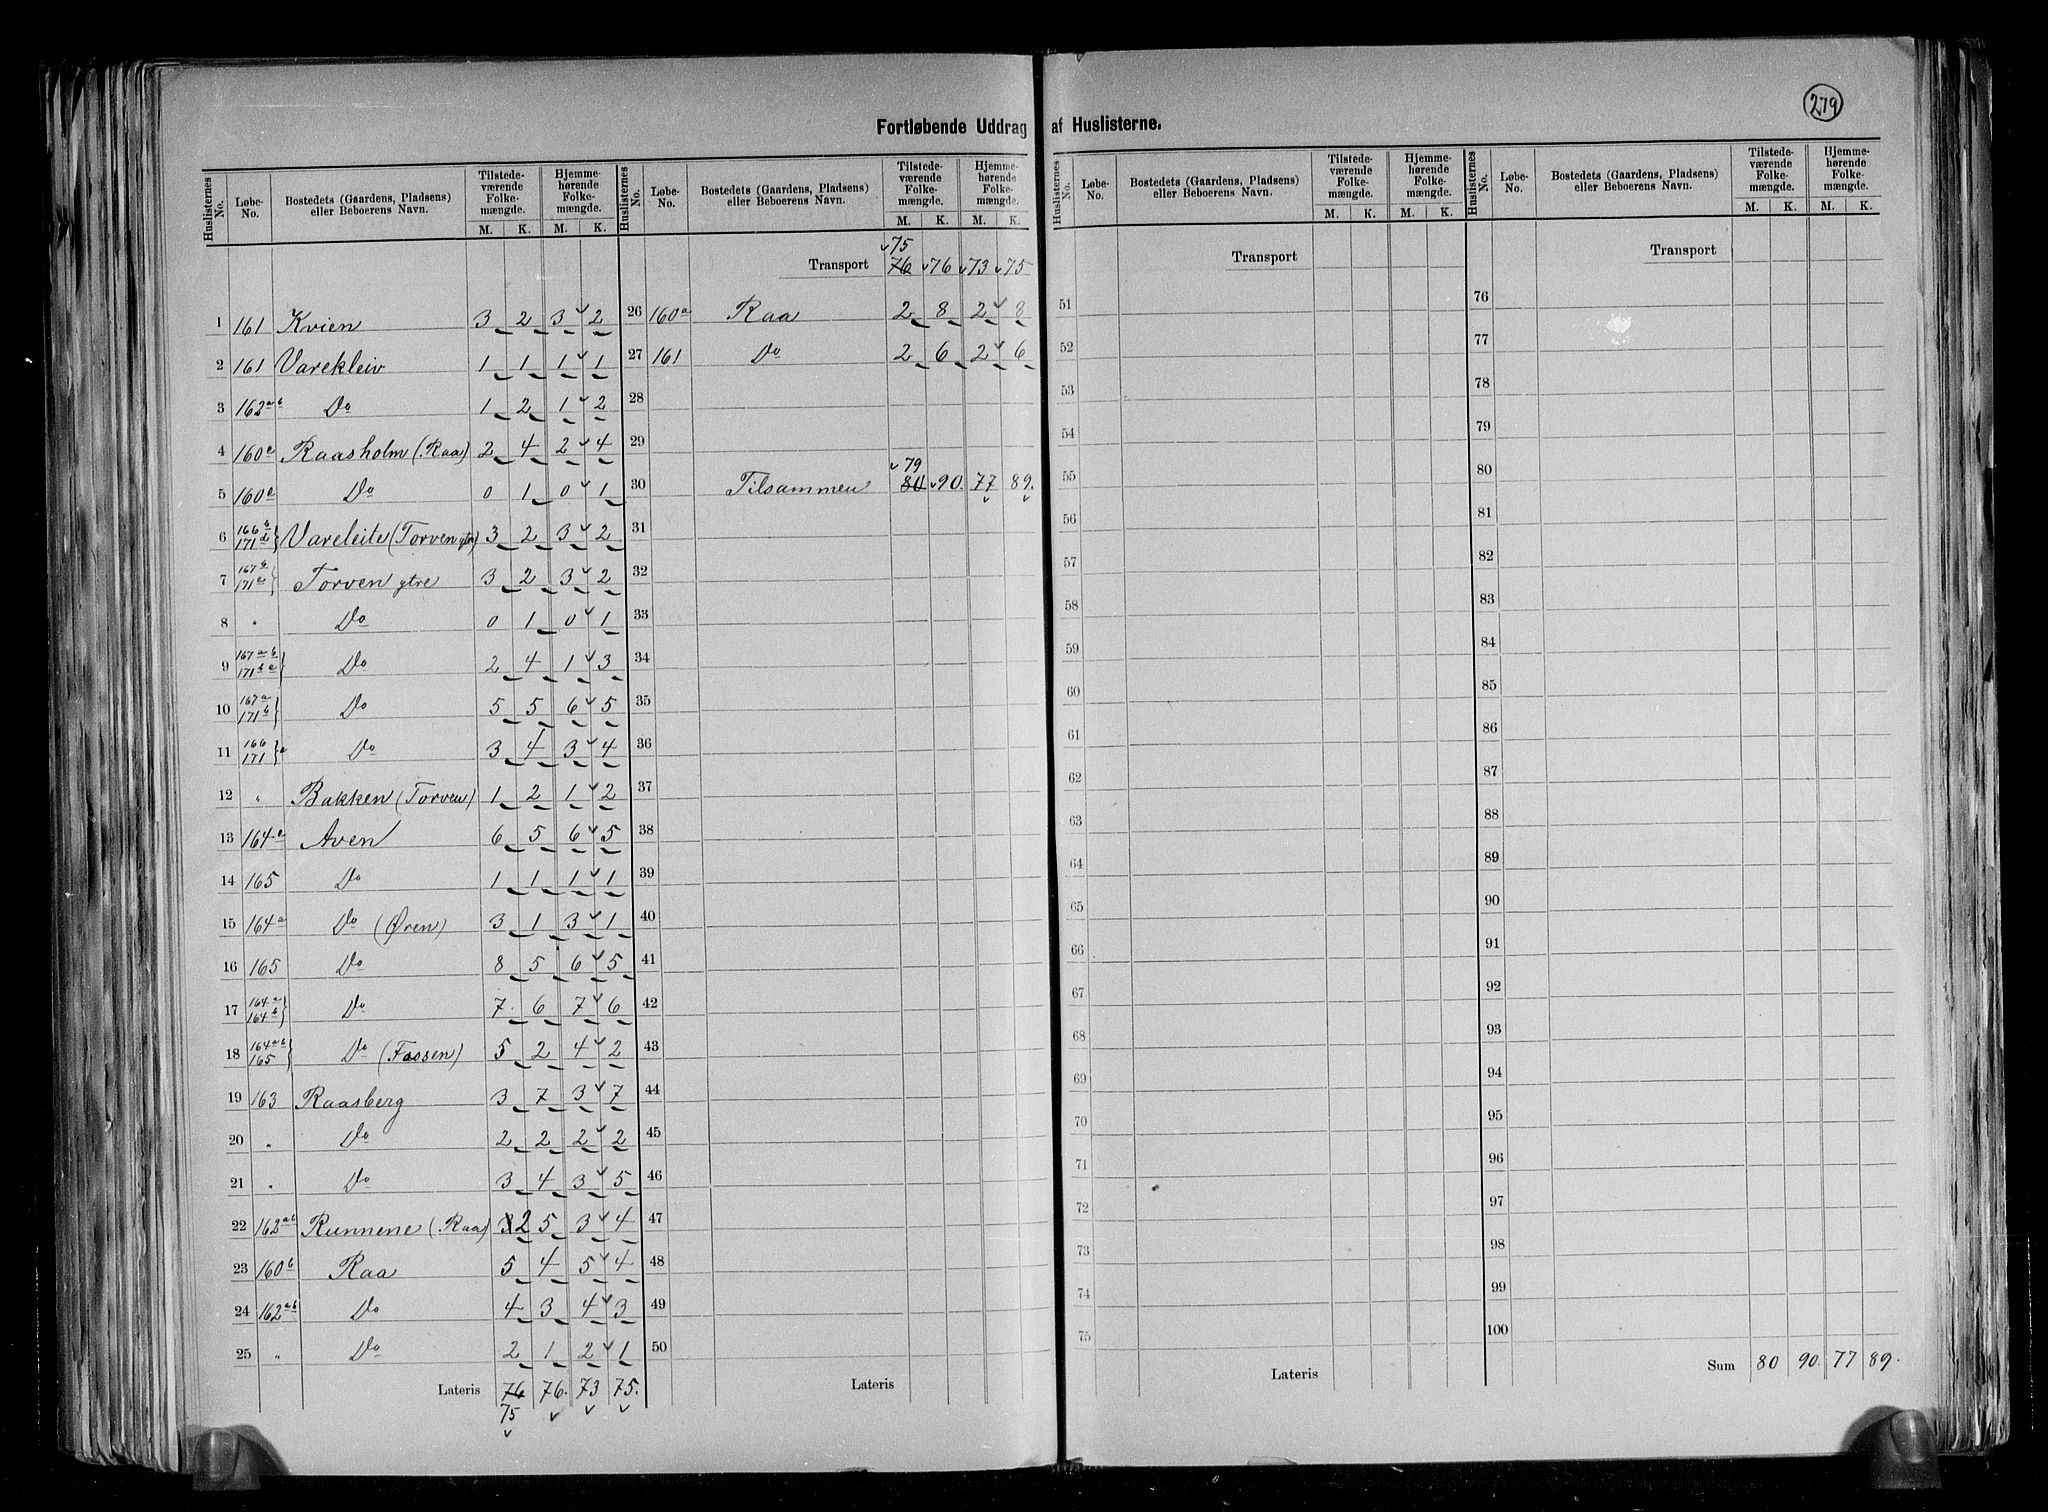 279
Fortløbende Uddrag af Huslisterne.
Huslisternes No. | Løbe-No. | Bostedets (Gaardens, Pladsens) eller Beboerens Navn. | Tilstedeværende Folkemængde. M. K. | Hjemmehørende Folkemængde. M. K.
1 161 Kvien 3 2 3 2
2 161 Varekleiv 1 1 1 1
3 162 a b Do 1 2 1 2
4 160 Raasholm (Raa) 2 4 2 4
5 160 Do 0 1 0 1
6 166 b 171 d } Vareleite (Torven ytre) 3 2 3 2
7 167 b 171 } Torven ytre 3 2 3 2
8 " Do 0 1 0 1
9 167 a b 171 } Do 2 4 1 3
10 167 a 171 b } Do 5 5 6 5
11 166 171 } Do 3 4 3 4
12 " Bakken (Torven) 1 2 1 2
13 164 Aven 6 5 6 5
14 165 Do 1 1 1 1
15 164 a Do (Øren) 3 1 3 1
16 165 Do 8 5 6 5
17 164 a 164 b } Do 7 6 7 6
18 164 a b 165 } Do (Fossen) 5 2 4 2
19 163 Raasberg 3 7 3 7
20 " Do 2 2 2 2
21 " Do 3 4 3 5
22 162 a b Runnene (Raa) 3 2 5 3 4
23 160 b Raa 5 4 5 4
24 162 a b Do 4 3 4 3
25 " Do 2 1 2 1
Lateris 76 76. 73 75.
75
Huslisternes No. | Løbe-No. | Bostedets (Gaardens, Pladsens) eller Beboerens Navn. | Tilstedeværende Folkemængde. M. K. | Hjemmehørende Folkemængde. M. K.
75
Transport 76 76 73 75
26 160 a Raa 2 8 2 8
27 161 Do 2 6 2 6
28
29
79
30 Tilsammen 80 90. 77 89.
31
32
33
34
35
36
37
38
39
40
41
42
43
44
45
46
47
48
49
50
Lateris
Huslisternes No. | Løbe-No. | Bostedets (Gaardens, Pladsens) eller Beboerens Navn. | Tilstedeværende Folkemængde. M. K. | Hjemmehørende Folkemængde. M. K.
Transport
51
52
53
54
55
56
57
58
59
60
61
62
63
64
65
66
67
68
69
70
71
72
73
74
75
Lateris
Huslisternes No. | Løbe-No. | Bostedets (Gaardens, Pladsens) eller Beboerens Navn. | Tilstedeværende Folkemængde. M. K. | Hjemmehørende Folkemængde. M. K.
Transport
76
77
78
79
80
81
82
83
84
85
86
87
88
89
90
91
92
93
94
95
96
97
98
99
100
Sum 80 90. 77 89.